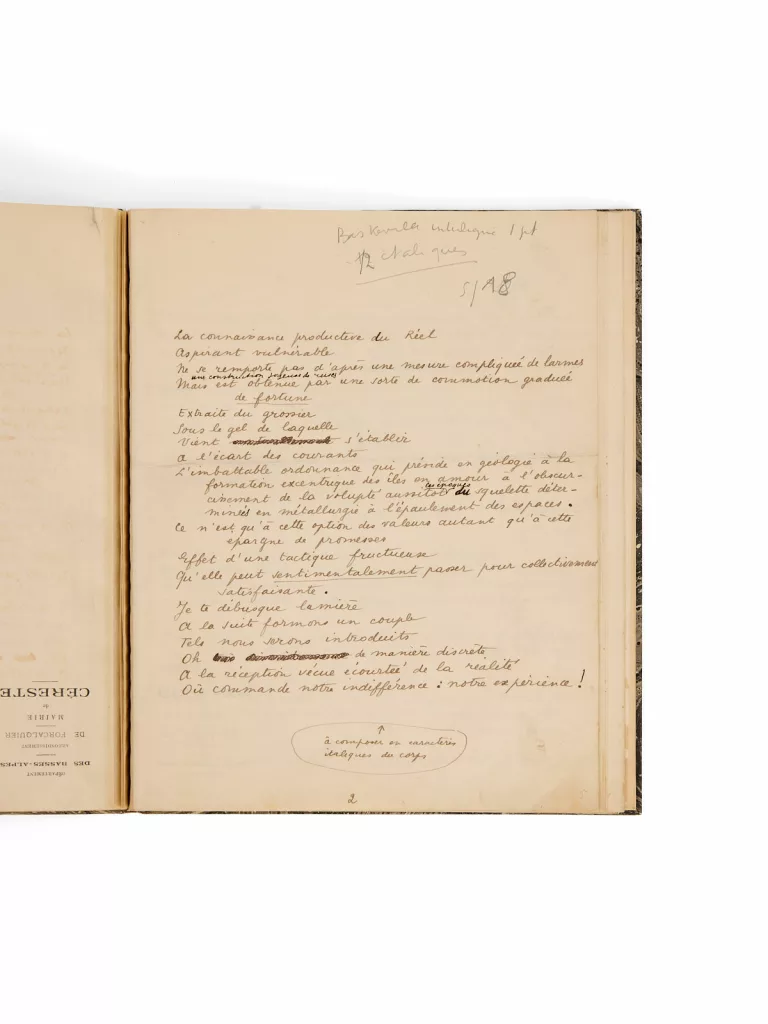 Baskerville interligne 1 pt
12 italiques
5/18
La connaissance productive du Réel
Aspirant vulnérable
Ne se remporte pas d'après une mesure compliquée de larmes
une construction
Mais est obtenue par une sorte de commotion graduée
de fortune
Extraite du grossier
Sous le gel de laquelle
Vient s'établir
A l'écart des courants
L'imbattable ordonnance qui préside en géologie à la
formation excentrique des îles en amour à l'obscur-
cissement de la volupté aussitôt du squelette déter-
minés en métallurgie à l'épaulement des espaces.
Ce n'est qu'à cette option des valeurs autant qu'à cette
épargne de promesses
Effet d'une tactique fructueuse
Qu'elle peut sentimentalement passer pour collectivement
satisfaisante.
Je te débusque lumière
A la suite formons un couple
Tels nous serons introduits
Oh de manière discrète
A la réception vécue écourtée de la réalité
Où commande notre indifférence : notre expérience !
à composer en caractères
italiques du corps
2
DÉPARTEMENT
DES BASSES-ALPES
ARRONDISSEMENT
DE FORCALQUIER
MAIRIE
de
CÉRESTE